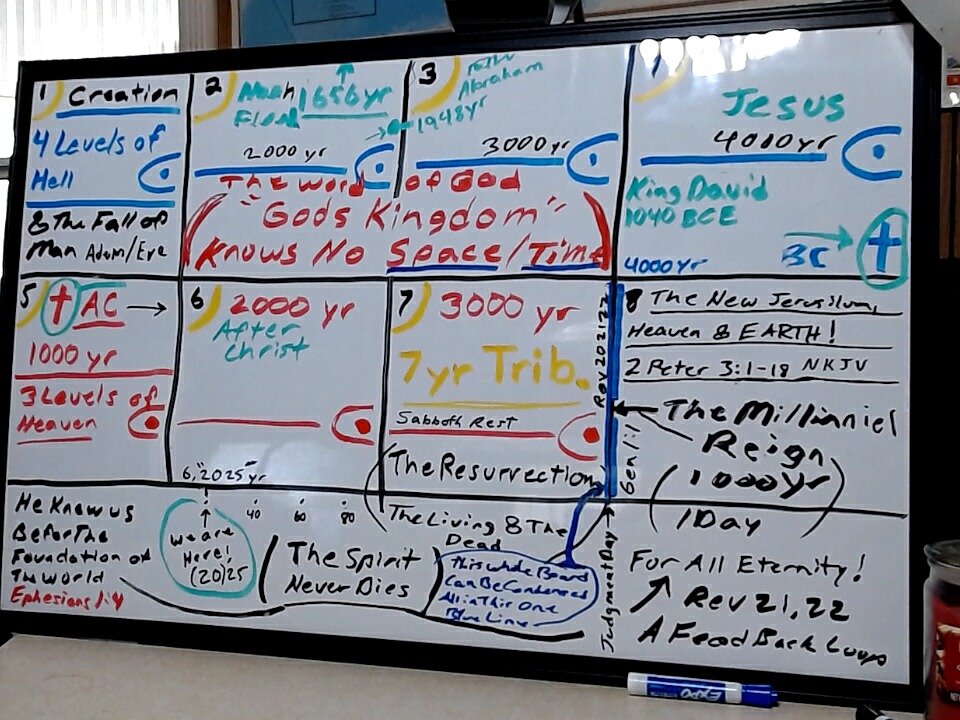 1 Creation
4 Levels of
Hell
& The Fall of
Man Adam/Eve
2 Noah 1656yr
Flood
2000 yr
3
Abraham
1948yr
3000yr
The Word of God
"Gods Kingdom"
Knows No Space/Time
Jesus
4000yr
King David
1040 BCE
BC
4000yr
5 AC
1000 yr
3 Levels of
Heaven
6 2000 yr
After
Christ
6,"2025"yr
7 3000 yr
7yr Trib.
Sabboth Rest
The Resurrection
Rev 20 21, 22
Gen 1:1
8 The New Jerusilum,
Heaven & EARTH!
2 Peter 3:1-18 NKJV
The Millinniel
Reign
(1000yr)
1 Day
He Knew us
Before The
Foundation of
The World
Ephesians 1:4
we are
Here!
(20)25
40 60 80
The Spirit
Never Dies
The Living & The
Dead
This whole Board
Can Be Condensed
All in This One
Blue Line
Judgment Day
For All Eternity!
Rev 21, 22
A Feed Back Loop
EXPO